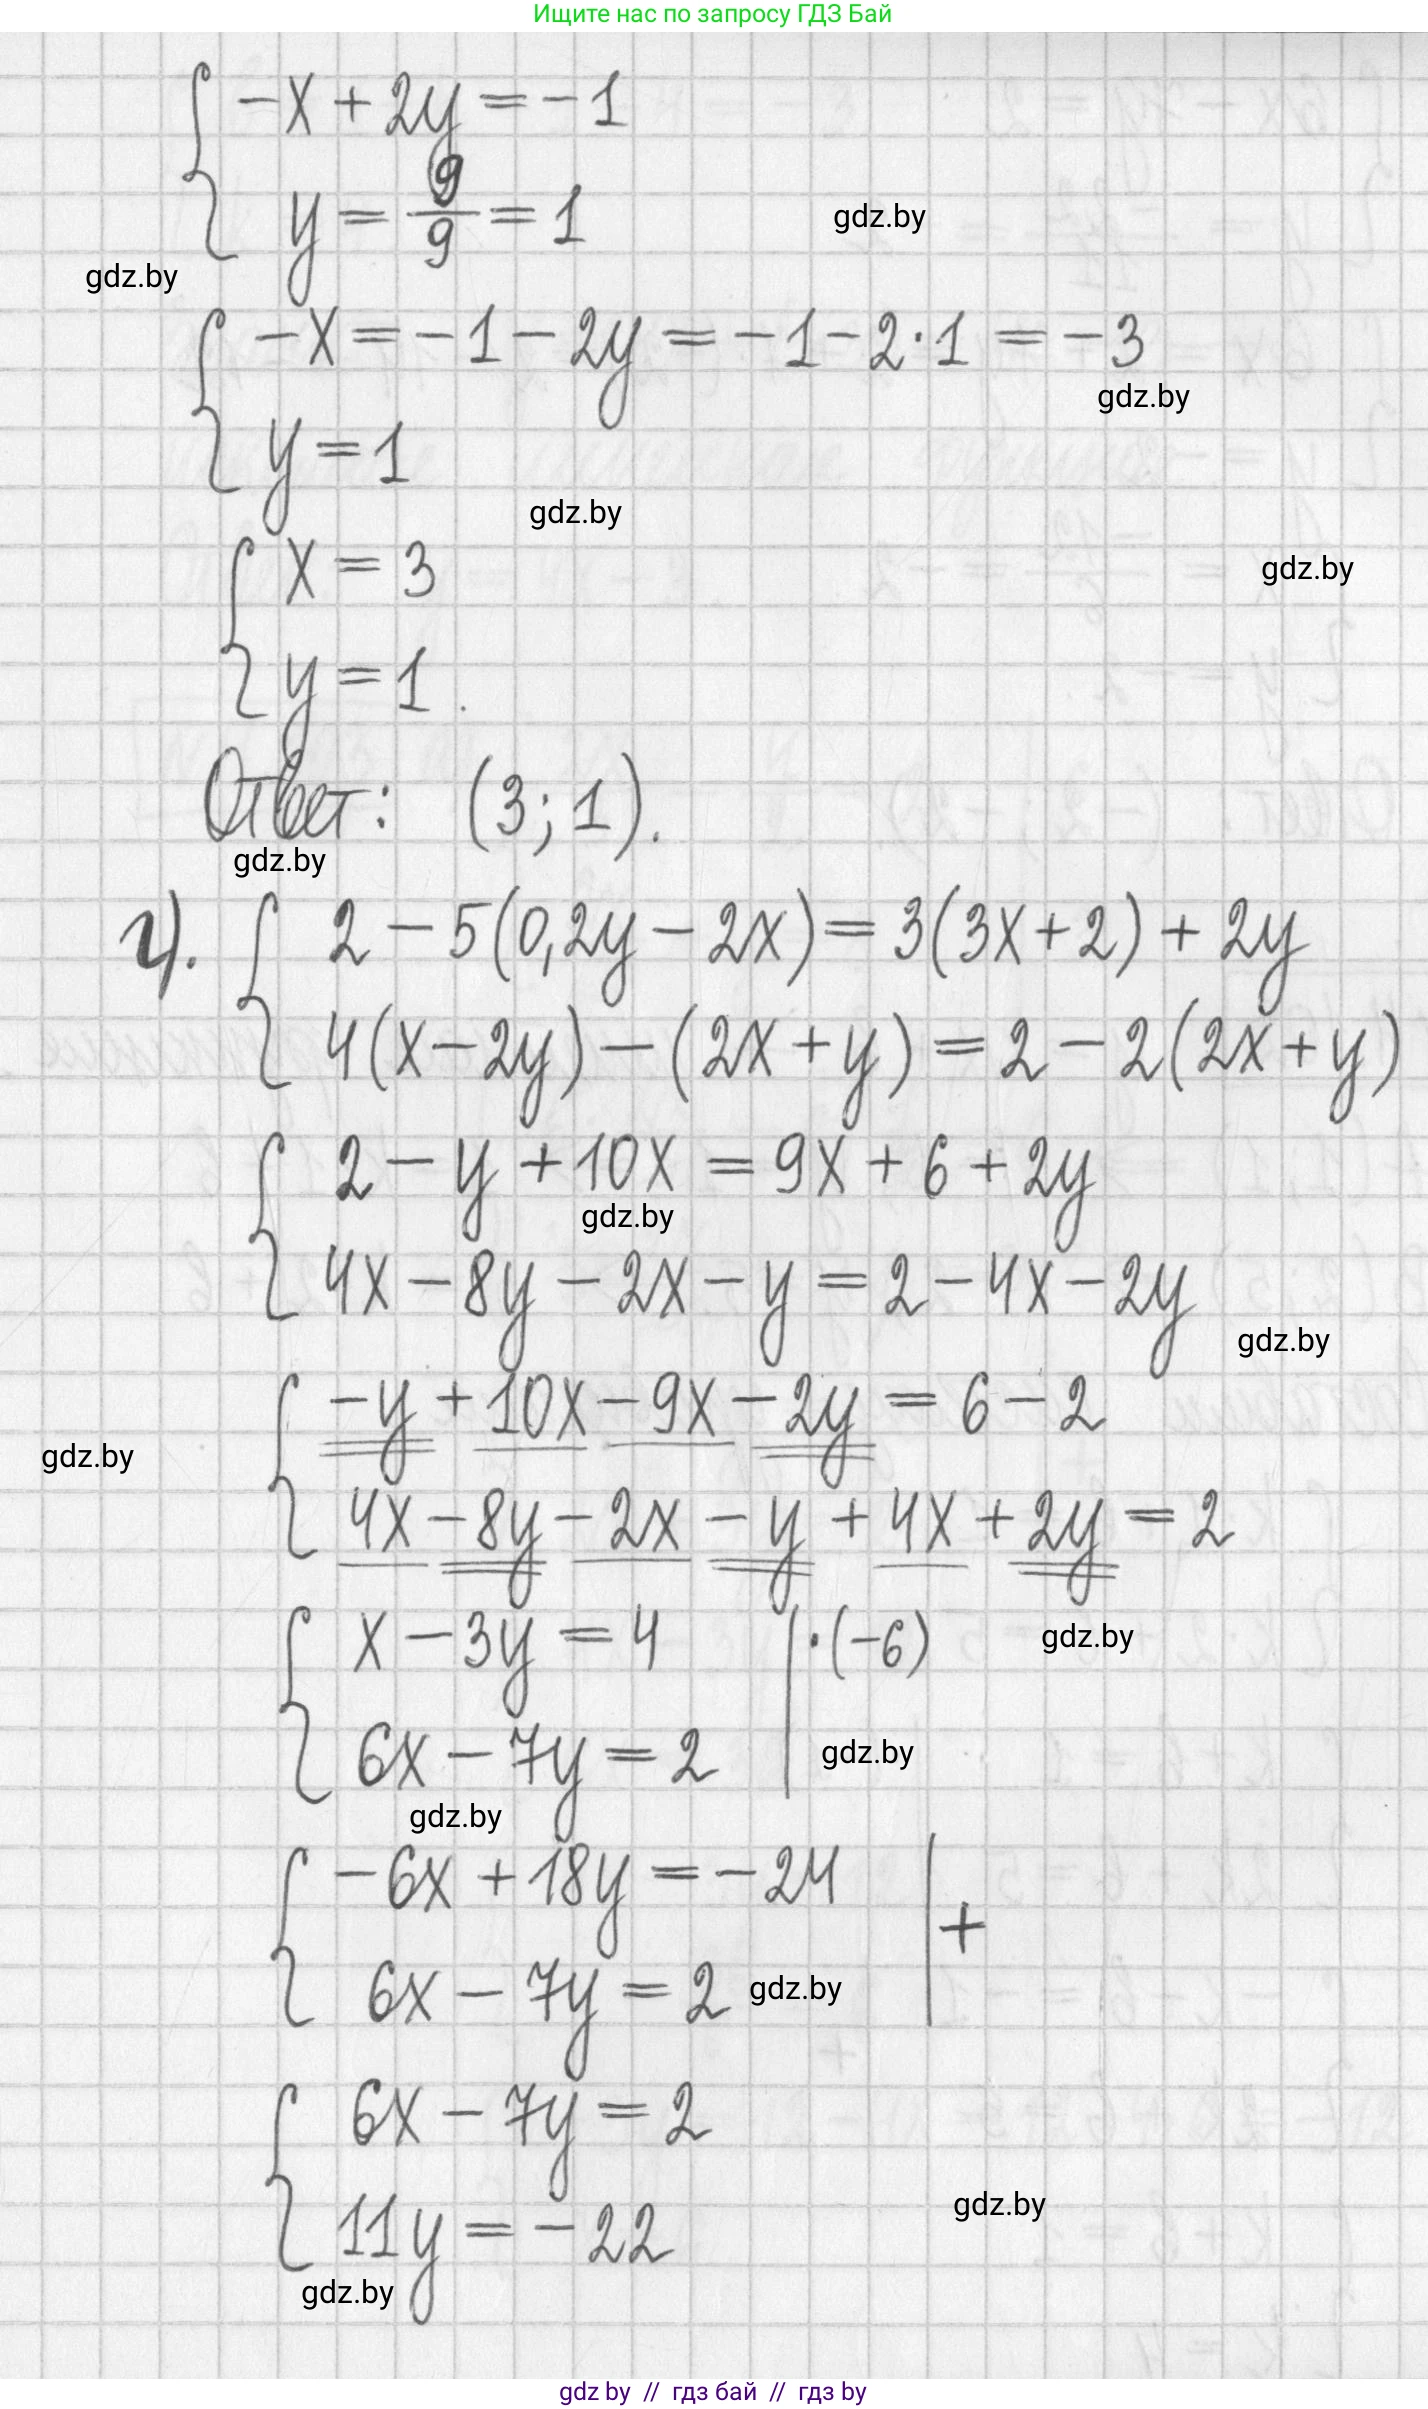 Ищите нас по запросу ГДЗ Бай
{ -x + 2y = -1
y = 9/9 = 1
gdz.by
gdz.by
{ -x = -1 - 2y = -1 - 2·1 = -3
gdz.by
y = 1
gdz.by
{ x = 3
gdz.by
y = 1.
Ответ: (3; 1).
gdz.by
г). { 2 - 5(0,2y - 2x) = 3(3x + 2) + 2y
4(x - 2y) - (2x + y) = 2 - 2(2x + y)
{ 2 - y + 10x = 9x + 6 + 2y
gdz.by
4x - 8y - 2x - y = 2 - 4x - 2y
gdz.by
{ -y + 10x - 9x - 2y = 6 - 2
gdz.by
4x - 8y - 2x - y + 4x + 2y = 2
{ x - 3y = 4 | ·(-6)
gdz.by
6x - 7y = 2
gdz.by
gdz.by
{ -6x + 18y = -24 | +
6x - 7y = 2
gdz.by
{ 6x - 7y = 2
gdz.by
11y = -22
gdz.by
gdz by // гдз бай // гдз by